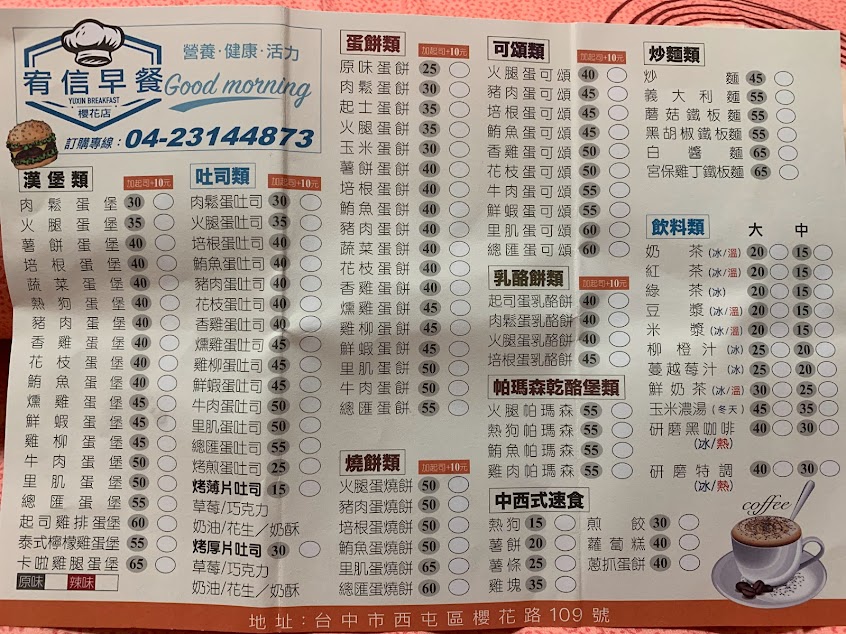 宥信早餐
YUXIN BREAKFAST
櫻花店
營養·健康·活力
Good morning
訂購專線：04-23144873
漢堡類 加起司+10元
肉鬆蛋堡 30
火腿蛋堡 35
薯餅蛋堡 40
培根蛋堡 40
蔬菜蛋堡 40
熱狗蛋堡 40
豬肉蛋堡 40
香雞蛋堡 40
花枝蛋堡 40
鮪魚蛋堡 40
燻雞蛋堡 45
鮮蝦蛋堡 45
雞柳蛋堡 45
牛肉蛋堡 50
里肌蛋堡 50
總匯蛋堡 55
起司雞排蛋堡 60
泰式檸檬雞蛋堡 55
卡啦雞腿蛋堡 65
原味 辣味
吐司類 加起司+10元
肉鬆蛋吐司 30
火腿蛋吐司 35
培根蛋吐司 40
鮪魚蛋吐司 40
豬肉蛋吐司 40
花枝蛋吐司 40
香雞蛋吐司 40
燻雞蛋吐司 45
雞柳蛋吐司 45
鮮蝦蛋吐司 45
牛肉蛋吐司 50
里肌蛋吐司 50
總匯蛋吐司 55
烤煎蛋吐司 25
烤薄片吐司 15
草莓/巧克力
奶油/花生/奶酥
烤厚片吐司 30
草莓/巧克力
奶油/花生/奶酥
蛋餅類 加起司+10元
原味蛋餅 25
肉鬆蛋餅 30
起士蛋餅 35
火腿蛋餅 35
玉米蛋餅 30
薯餅蛋餅 40
培根蛋餅 40
鮪魚蛋餅 40
豬肉蛋餅 40
蔬菜蛋餅 40
花枝蛋餅 40
香雞蛋餅 40
燻雞蛋餅 45
雞柳蛋餅 45
鮮蝦蛋餅 45
里肌蛋餅 50
牛肉蛋餅 50
總匯蛋餅 55
燒餅類 加起司+10元
火腿蛋燒餅 50
豬肉蛋燒餅 50
培根蛋燒餅 50
鮪魚蛋燒餅 50
里肌蛋燒餅 65
總匯蛋燒餅 60
可頌類 加起司+10元
火腿蛋可頌 40
豬肉蛋可頌 45
培根蛋可頌 45
鮪魚蛋可頌 45
香雞蛋可頌 50
花枝蛋可頌 50
牛肉蛋可頌 55
鮮蝦蛋可頌 55
里肌蛋可頌 60
總匯蛋可頌 60
乳酪餅類 加起司+10元
起司蛋乳酪餅 40
肉鬆蛋乳酪餅 40
火腿蛋乳酪餅 40
培根蛋乳酪餅 45
帕瑪森乾酪堡類
火腿帕瑪森 55
熱狗帕瑪森 55
鮪魚帕瑪森 55
雞肉帕瑪森 55
中西式速食
熱狗 15 煎餃 30
薯餅 20 蘿蔔糕 40
薯條 25 蔥抓餅 40
雞塊 35
炒麵類
炒麵 45
義大利麵 55
蘑菇鐵板麵 55
黑胡椒鐵板麵 55
白醬麵 65
宮保雞丁鐵板麵 65
飲料類 大 中
奶茶(冰/溫) 20 15
紅茶(冰/溫) 20 15
綠茶(冰) 20 15
豆漿(冰/溫) 20 15
米漿(冰/溫) 20 15
柳橙汁(冰) 25 20
蔓越莓汁(冰) 25 20
鮮奶茶(冰/溫) 30 25
玉米濃湯(冬天) 45 35
研磨黑咖啡 40 30
(冰/熱)
研磨特調 40 30
(冰/熱)
coffee
地址:台中市西屯區櫻花路109號